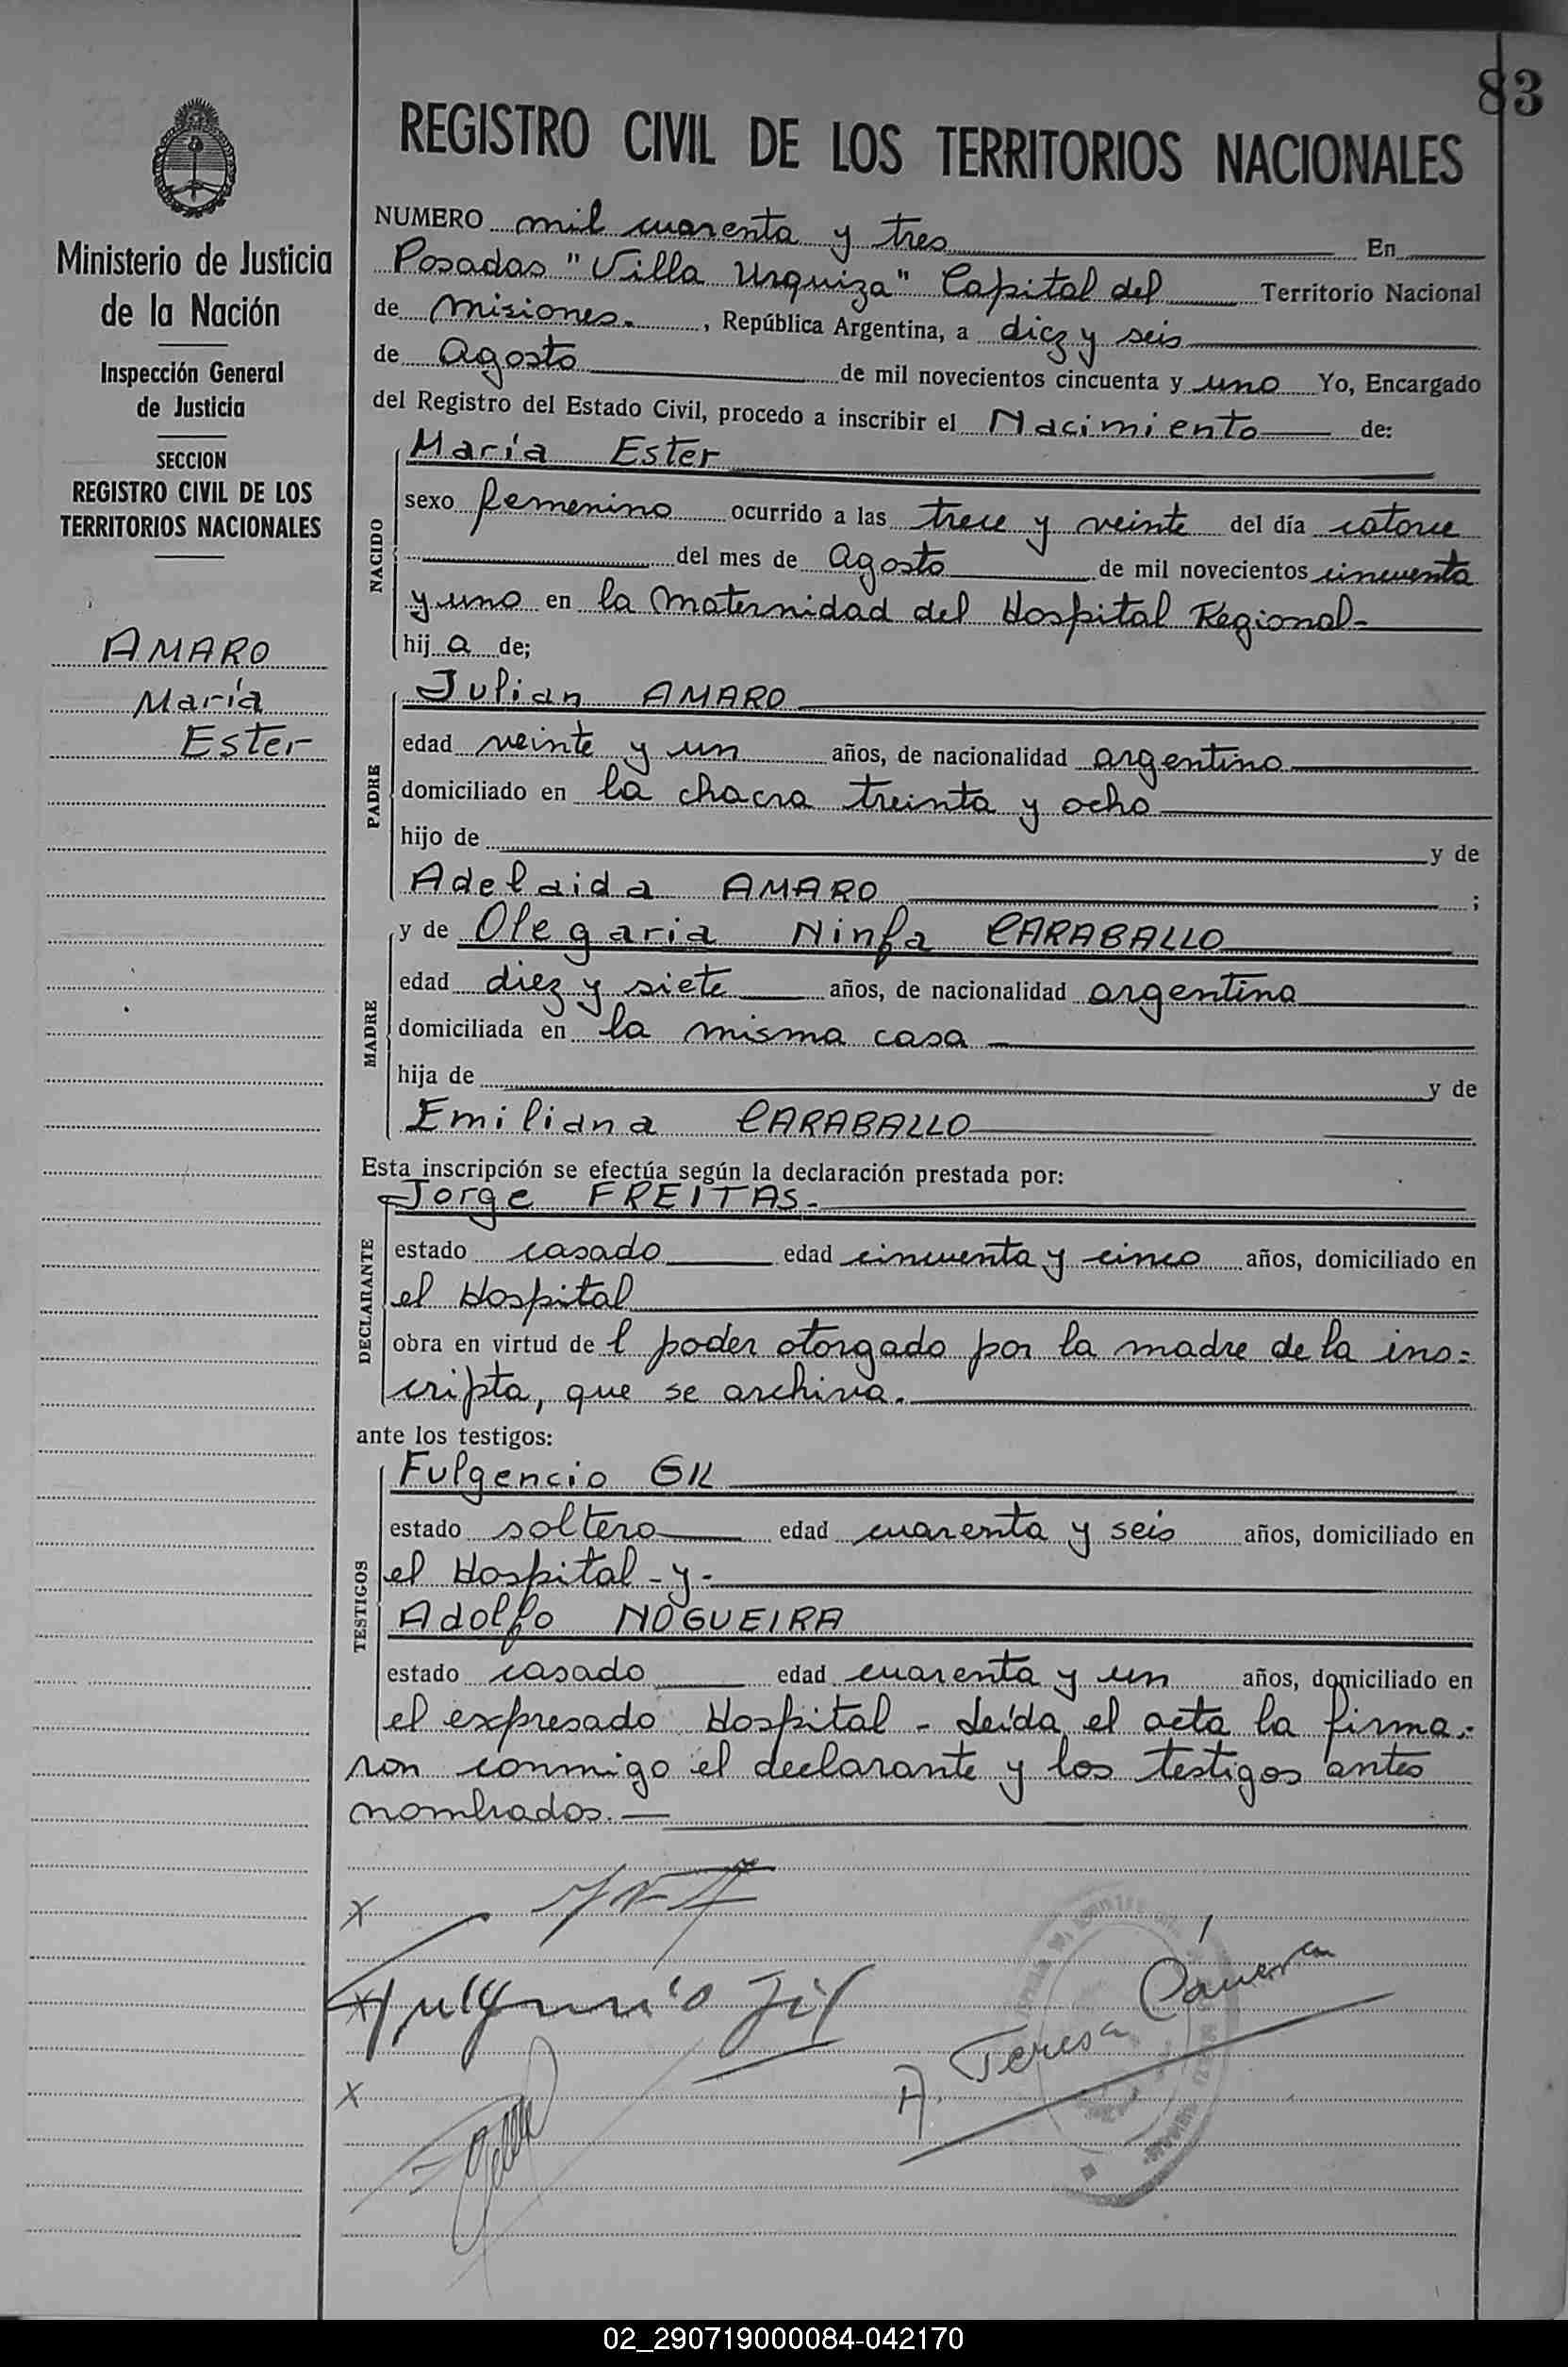 83
REGISTRO CIVIL DE LOS TERRITORIOS NACIONALES
Ministerio de Justicia
de la Nación
Inspección General
de Justicia
SECCION
REGISTRO CIVIL DE LOS
TERRITORIOS NACIONALES
AMARO
María
Ester
NUMERO mil cuarenta y tres En
Posadas "Villa Urquiza" Capital del Territorio Nacional
de Misiones. , República Argentina, a diez y seis
de Agosto de mil novecientos cincuenta y uno Yo, Encargado
del Registro del Estado Civil, procedo a inscribir el Nacimiento de:
NACIDO
María Ester
sexo femenino ocurrido a las trece y veinte del día catorce
del mes de Agosto de mil novecientos cincuenta
y uno en la Maternidad del Hospital Regional-
hij a de;
PADRE
Julian AMARO
edad veinte y un años, de nacionalidad argentino
domiciliado en la chacra treinta y ocho
hijo de y de
Adelaida AMARO ;
MADRE
y de Olegaria Ninfa CARABALLO
edad diez y siete años, de nacionalidad argentina
domiciliada en la misma casa
hija de y de
Emiliana CARABALLO
Esta inscripción se efectúa según la declaración prestada por:
DECLARANTE
Jorge FREITAS.-
estado casado edad cincuenta y cinco años, domiciliado en
el Hospital
obra en virtud de l poder otorgado por la madre de la ins=
cripta, que se archiva.
ante los testigos:
TESTIGOS
Fulgencio GIL
estado soltero edad cuarenta y seis años, domiciliado en
el Hospital - y -
Adolfo NOGUEIRA
estado casado edad cuarenta y un años, domiciliado en
el expresado Hospital - Leída el acta la firma=
ron conmigo el declarante y los testigos antes
nombrados.-
x
x Fulgencio Gil
A. Teresa
x
02_290719000084-042170